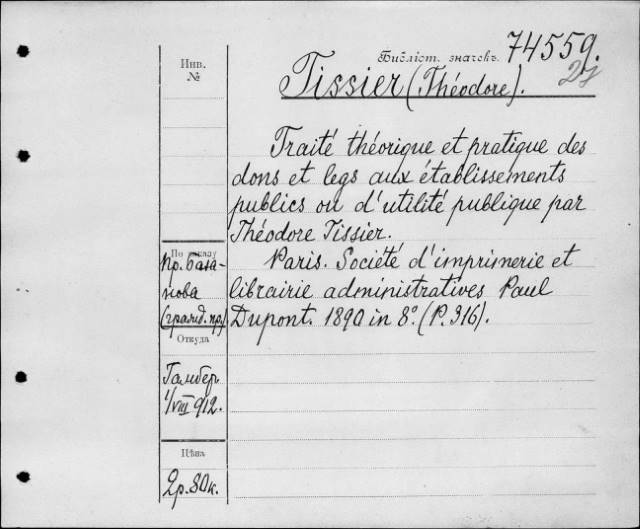 Инв.
№
Библіот. значекъ. 74559.
Tissier (Théodore).
Traité théorique et pratique des
dons et legs aux établissements
publics ou d'utilité publique par
Théodore Tissier.
Paris. Société d'imprimerie et
librairie administratives Paul
Dupont. 1890 in 8°. (P. 316).
По
Пр. База-
нова
(гражд. пр.)
Откуда
Гамбер
1/VIII 912.
Цѣна
2 р. 80 к.